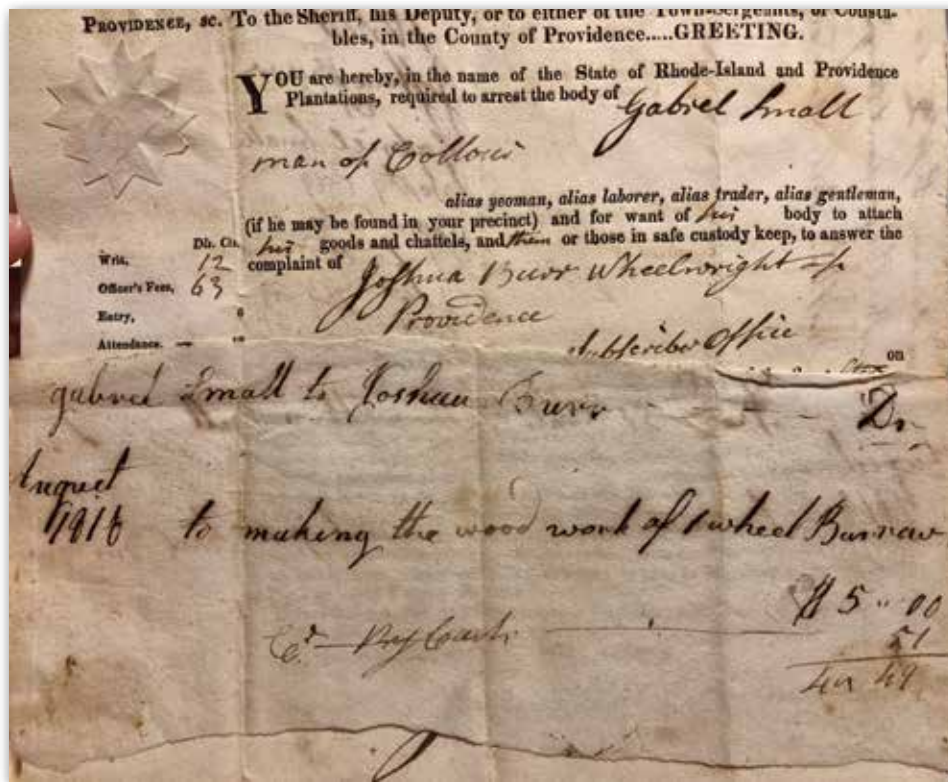 PROVIDENCE, sc. To the Sheriff, his Deputy, or to either of the Town-Sergeants, or Consta-
bles, in the County of Providence.....GREETING.
YOU are hereby, in the name of the State of Rhode-Island and Providence
Plantations, required to arrest the body of Gabriel Small
man of
alias yeoman, alias laborer, alias trader, alias gentleman,
(if he may be found in your precinct) and for want of his body to attach
his goods and chattels, and them or those in safe custody keep, to answer the
complaint of Joshua Burr Wheelwright of
Providence
Subscriber Office
on
Dls. Cts.
Writ, 12
Officer's Fees, 63
Entry,
Attendance.
gabriel Small to Joshua Burr Dr
August
to making the wood work of 1 wheel Barrow
$ 5 " 00
Cr By Cash 51
4 " 49